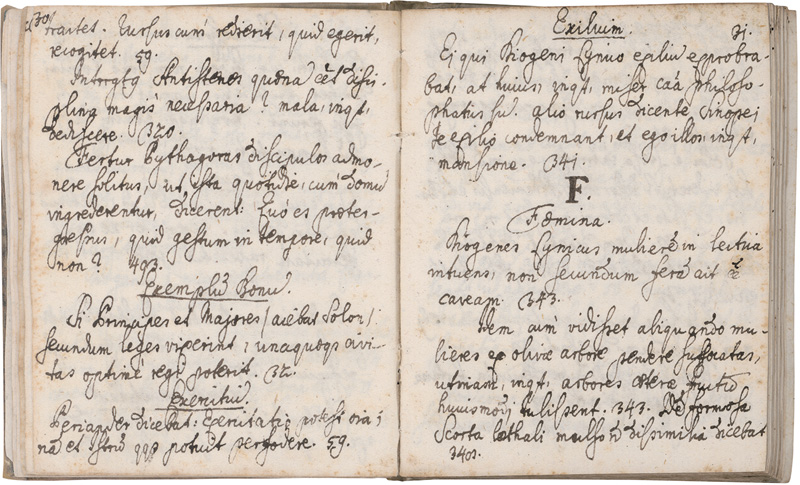 30
tractet. Rursus cum redierit, quid egerit,
recogitet. 59.
Interrogatg Antisthenes quænã eẽt disci-
plina magis necessaria? mala, inqt,
dediscere. 320.
Fertur Pythagoras discipulos admo-
nere solitus, ut ista quotidie, cum domũ
ingrederentur, dicerent: Quò es præter-
gressus, quid gestum in tempore, quid
non? 493.
Exemplũ Bonũ.
Si Principes et Majores (dicebat Solon)
secundum leges vixerint, unaquæqs civi-
tas optimè regi poterit. 32.
Periander dicebat:
et potuit 59.
Exilium. 31.
Ei qui Diogeni Cynico exiliũ exprobra-
bat, at huius, inqt, miser cãa philoso-
phatus sũ. alio rursus dicente Sinopei
te exilio condemnant, et ego illos, inqt,
mansione. 341.
F.
Fæmina.
Diogenes Cynicus mulierẽ in lectica
intuens, non secundum ferã ait
caveam. 343.
Idem cum vidisset aliquando mu-
lieres ex olivæ arbore pendere suffocatas,
utinam, inqt, arbores cæteræ fructũ
huiusmodi tulissent. 343. De formosa
Scorta lethali mulso dissimilia dicebat
340.